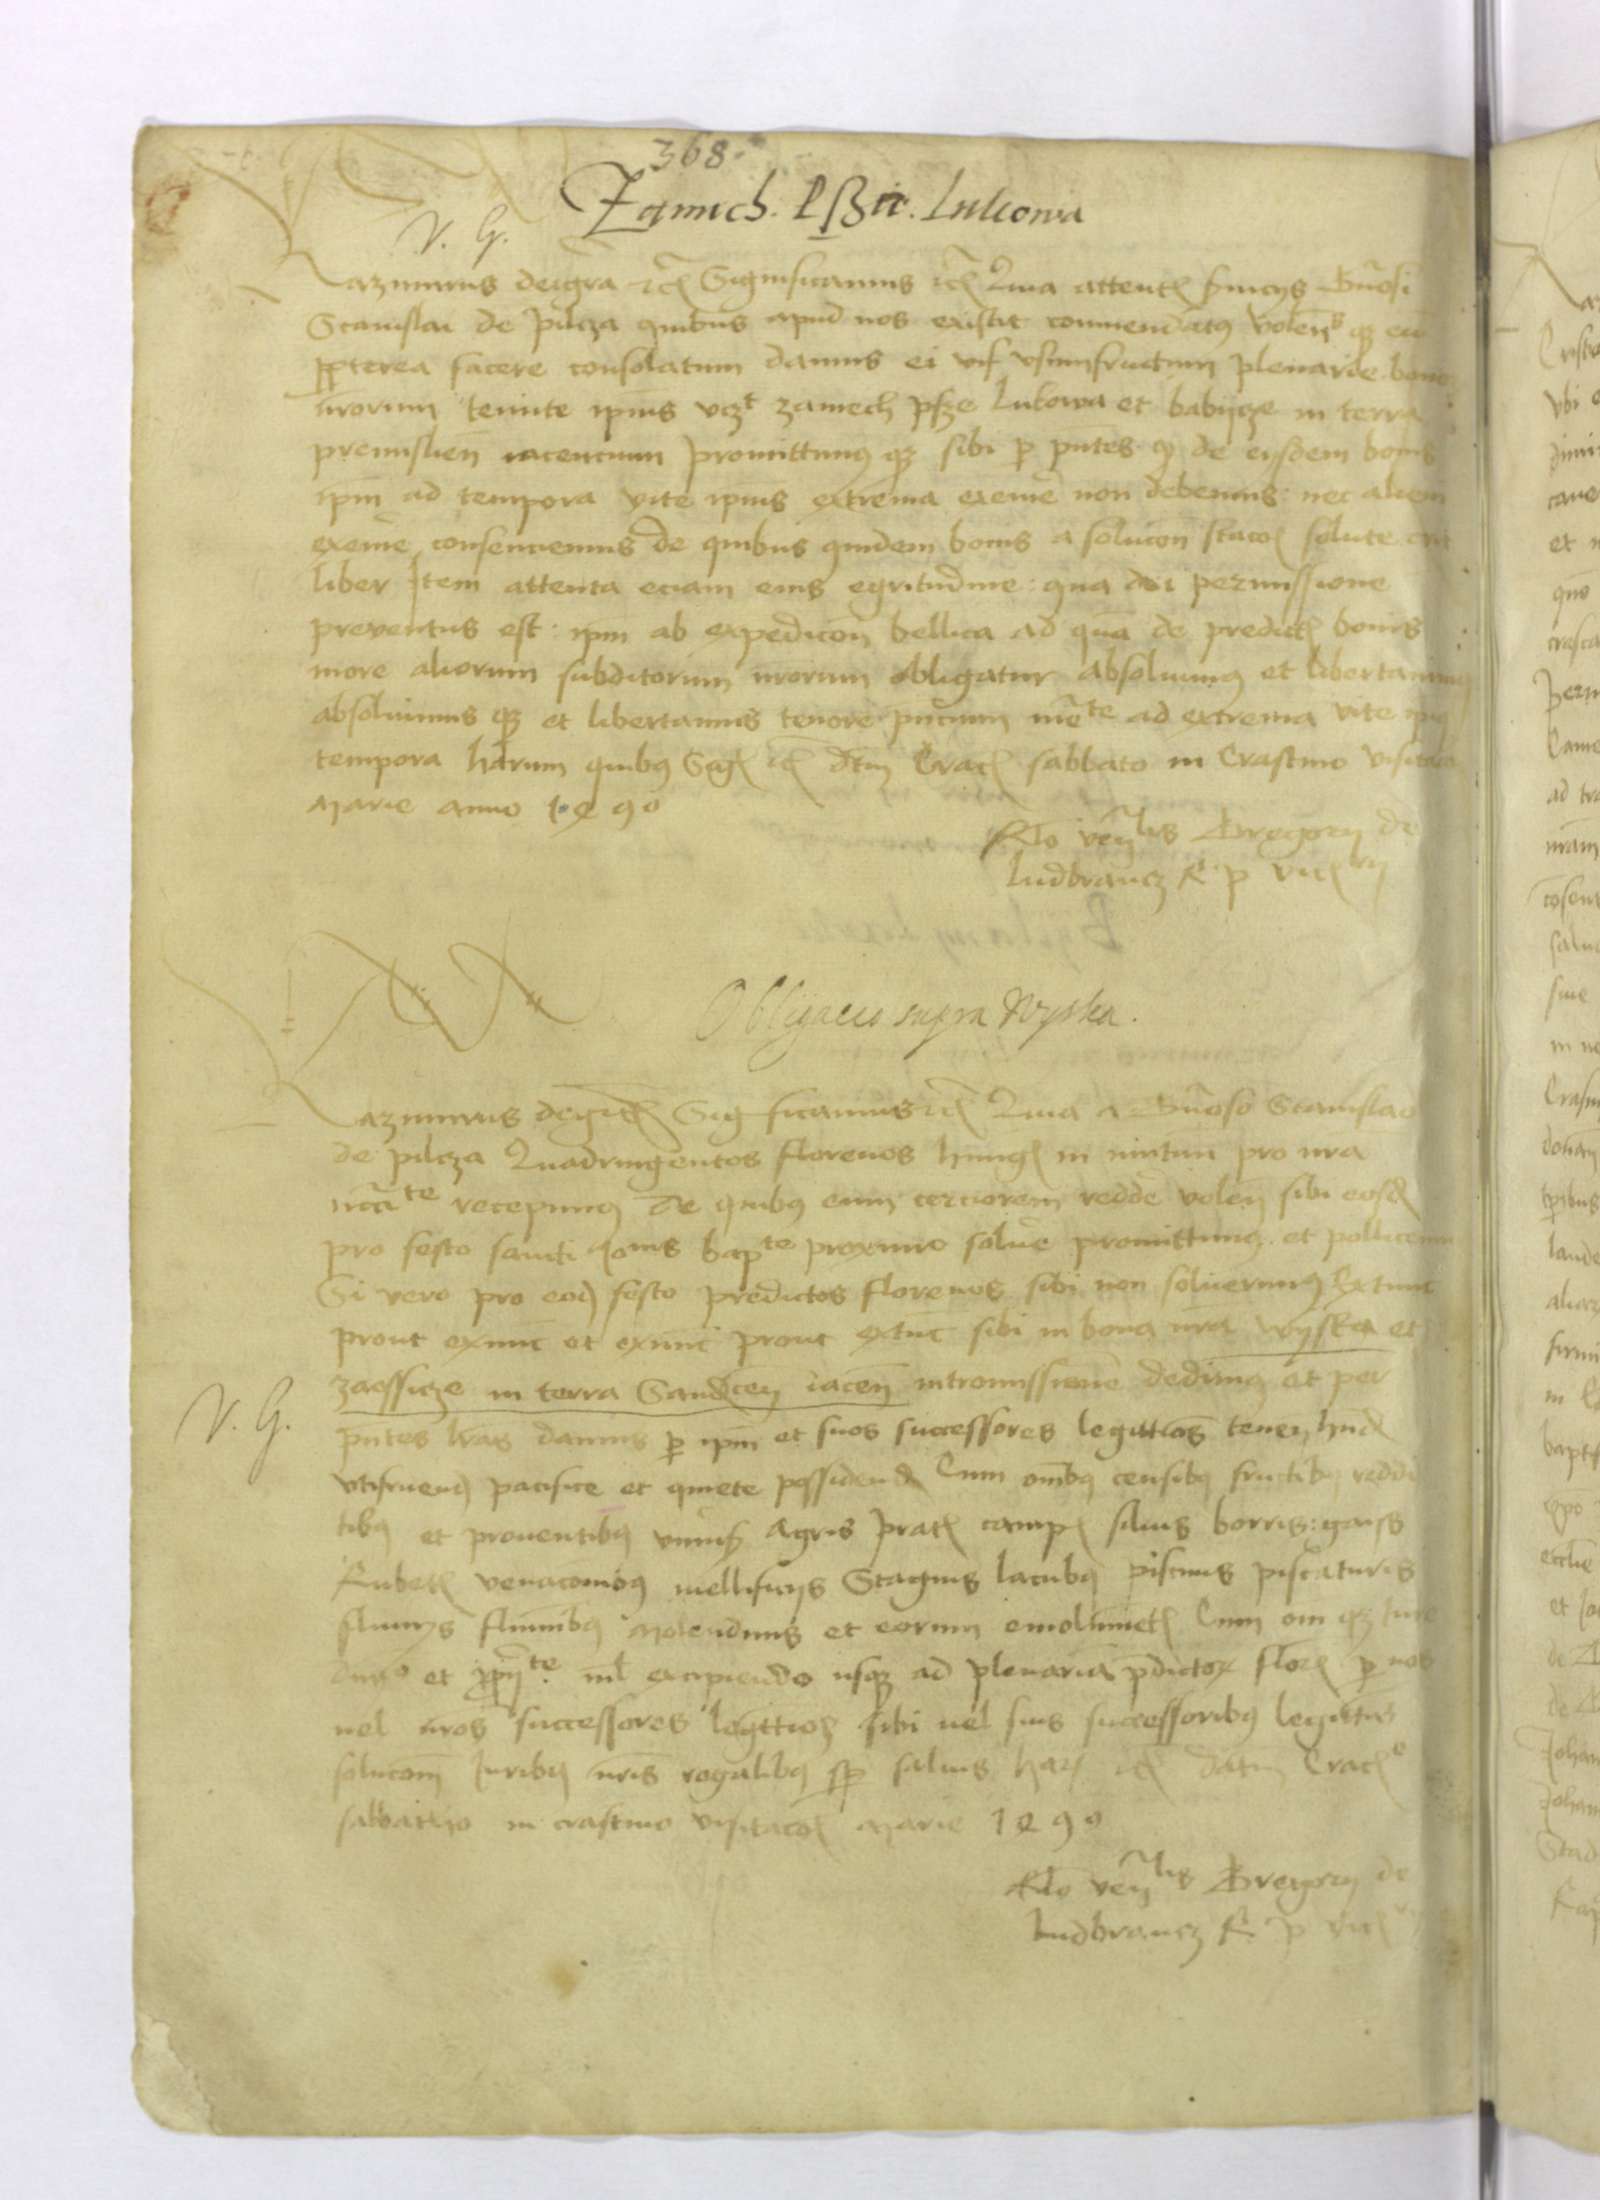 368
Zamich. Lukowa
V. G.
Kazimirus deigra etc Significamus etc Quia attentis Gnosi
Stanislai de pilcza quibus apud nos existit commendatus volens qz eu
ppterea facere consolatum damus ei usumfructum plenarie bono
nrorum tenute ipius uczt zamech Lukowa et babijcze in terra
premislien iacencium promittimus qz sibi p pntes qz de eisdem bonis
ipm ad tempora vite ipius extrema exime non debemus nec alicui
exime consenciemus de quibus quidem bonis a solucon stacol solute erit
liber Item attenta eciam eius egritudine qua dei permissione
preventus est ipm ab expedicon bellica ad qua de predict bonis
more aliorum subditorum nrorum obligatur absolvimus et libertamus
absolvimus qz et libertamus tenore pncium mete ad extrema vite ipius
tempora harum quibus Sigl etc Dtm Crac sabbato in Crastino Visitac
Marie anno 1490
Rlo venlis Gregorij de
ludbrancz R p vice
Obligacio supra Wyska.
Kazimirus deigra Significamus etc Quia a Gnoso Stanislao
de pilcza Quadringentos florenos hung in mutuu pro nra
ncctate recepimus De quibus eum cerciorem redde volen sibi eosd
pro festo sancti Joannis bapte proximo solve promittimus et pollicemur
Si vero pro eod festo predictos florenos sibi non solverimus Extunc
prout exnunc et exnunc prout extunc sibi in bona nra wyska et
in terra iacen intromissione dedimus et per
V. G.
pntes lras damus p ipm et suos successores legittios tenen hnd
utifruend pacifice et quiete possidend Cum omnibus censibus fructibus reddi
tibus et proventibus Agris prat camp silvis borris gais
Rubet venaconibus mellificijs Stagnis lacubus piscinis piscaturis
fluvijs fluminibus Molendinis et eorum emolumet Cum omi qz Jure
dnio et pprijte nil excipiendo usqz ad plenaria pdictor flor p nos
vel nros successores legittios sibi vel suis successoribus legittis
solucom Juribus nris regalibus sp salvis har etc Datum Crac
sabbatho in crastino visitacol Marie 1490
Rlo venlis Gregorij de
ludbrancz R p vice